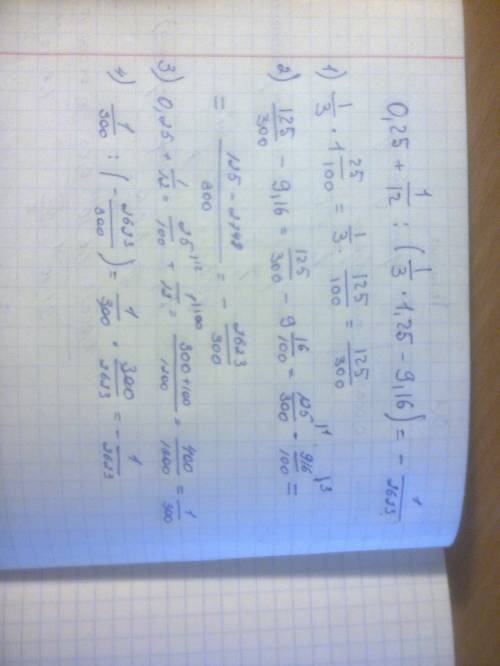 0,25 + 1/12 : (1/3 · 1,25 − 9,16) = − 1/2623
1) 1/3 · 1 25/100 = 1/3 · 125/100 = 125/300
2) 125/300 − 9,16 = 125/300 − 9 16/100 = 125/300 |1 − 916/100 |3 =
= 125 − 2748/300 = − 2623/300
3) 0,25 + 1/12 = 25/100 |12 + 1/12 |100 = 300+100/1200 = 400/1200 = 1/300
4) 1/300 : (− 2623/300) = 1/300 · 300/2623 = − 1/2623